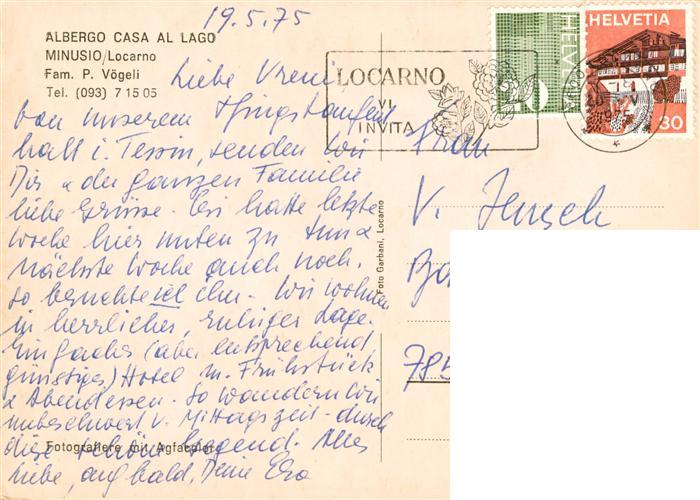 19.5.75
ALBERGO CASA AL LAGO
MINUSIO/Locarno
Fam. P. Vögeli
Tel. (093) 7 15 05
HELVETIA
30
HELVETIA
LOCARNO
VI
INVITA
Liebe Vreni
von unserem Pfingstaufent
halt i. Tessin, senden wir
Dir & der ganzen Familie
liebe Grüsse. Er hatte letzte
Woche hier unten zu tun &
nächste Woche auch noch,
so besuchte ich ihn. Wir wohnen
in herrlicher, ruhiger Lage.
Einfaches (aber entsprechend
günstiges) Hotel m. Frühstück
& Abendessen. So wandern wir
unbeschwert v. Mittagszeit durch
diese schöne Gegend. Alles
Liebe, auf bald, Deine
Fotografiere mit Agfacolor
Foto Garbani, Locarno
Frau
V. Jensch
785